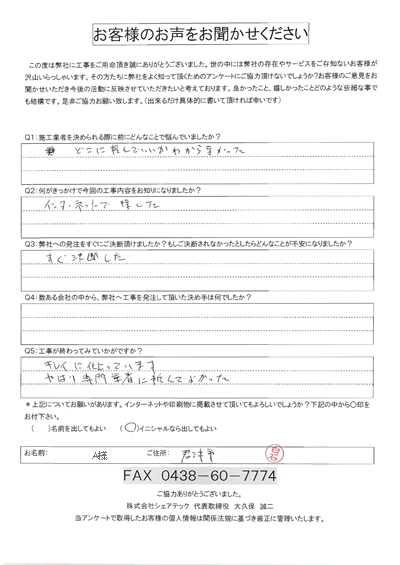 お客様のお声をお聞かせください
この度は弊社に工事をご用命頂き誠にありがとうございました。世の中には弊社の存在やサービスをご存知ないお客様が
沢山いらっしゃいます。その方たちに弊社をよく知って頂くためのアンケートにご協力頂けないでしょうか?お客様のご意見をお
聞かせいただき今後の活動に反映させていただきたいと考えております。良かったこと、嬉しかったことどのような些細な事で
も結構です。是非ご協力お願い致します。(出来るだけ具体的に書いて頂ければ幸いです)
Q1:施工業者を決められる際に前にどんなことで悩んでいましたか?
どこに頼んでいいかわからなかった
Q2:何がきっかけで今回の工事内容をお知りになりましたか?
インターネットで探した
Q3:弊社への発注をすぐにご決断頂けましたか?もしご決断されなかったとしたらどんなことが不安になりましたか?
すぐ決断した
Q4:数ある会社の中から、弊社へ工事を発注して頂いた決め手は何でしたか?
Q5:工事が終わってみていかがですか?
キレイに仕上っています
やはり専門業者に頼んでよかった
*上記についてお願いがあります。インターネットや印刷物に掲載させて頂いてもよろしいでしょうか?下記の中から〇印を
お付下さい。
( )名前を出してもよい (〇)イニシャルなら出してもよい
お名前: A様 ご住所: 君津市
FAX 0438-60-7774
ご協力ありがとうございました。
株式会社シェアテック 代表取締役 大久保 誠二
当アンケートで取得したお客様の個人情報は関係法規に基づき厳正に管理いたします。